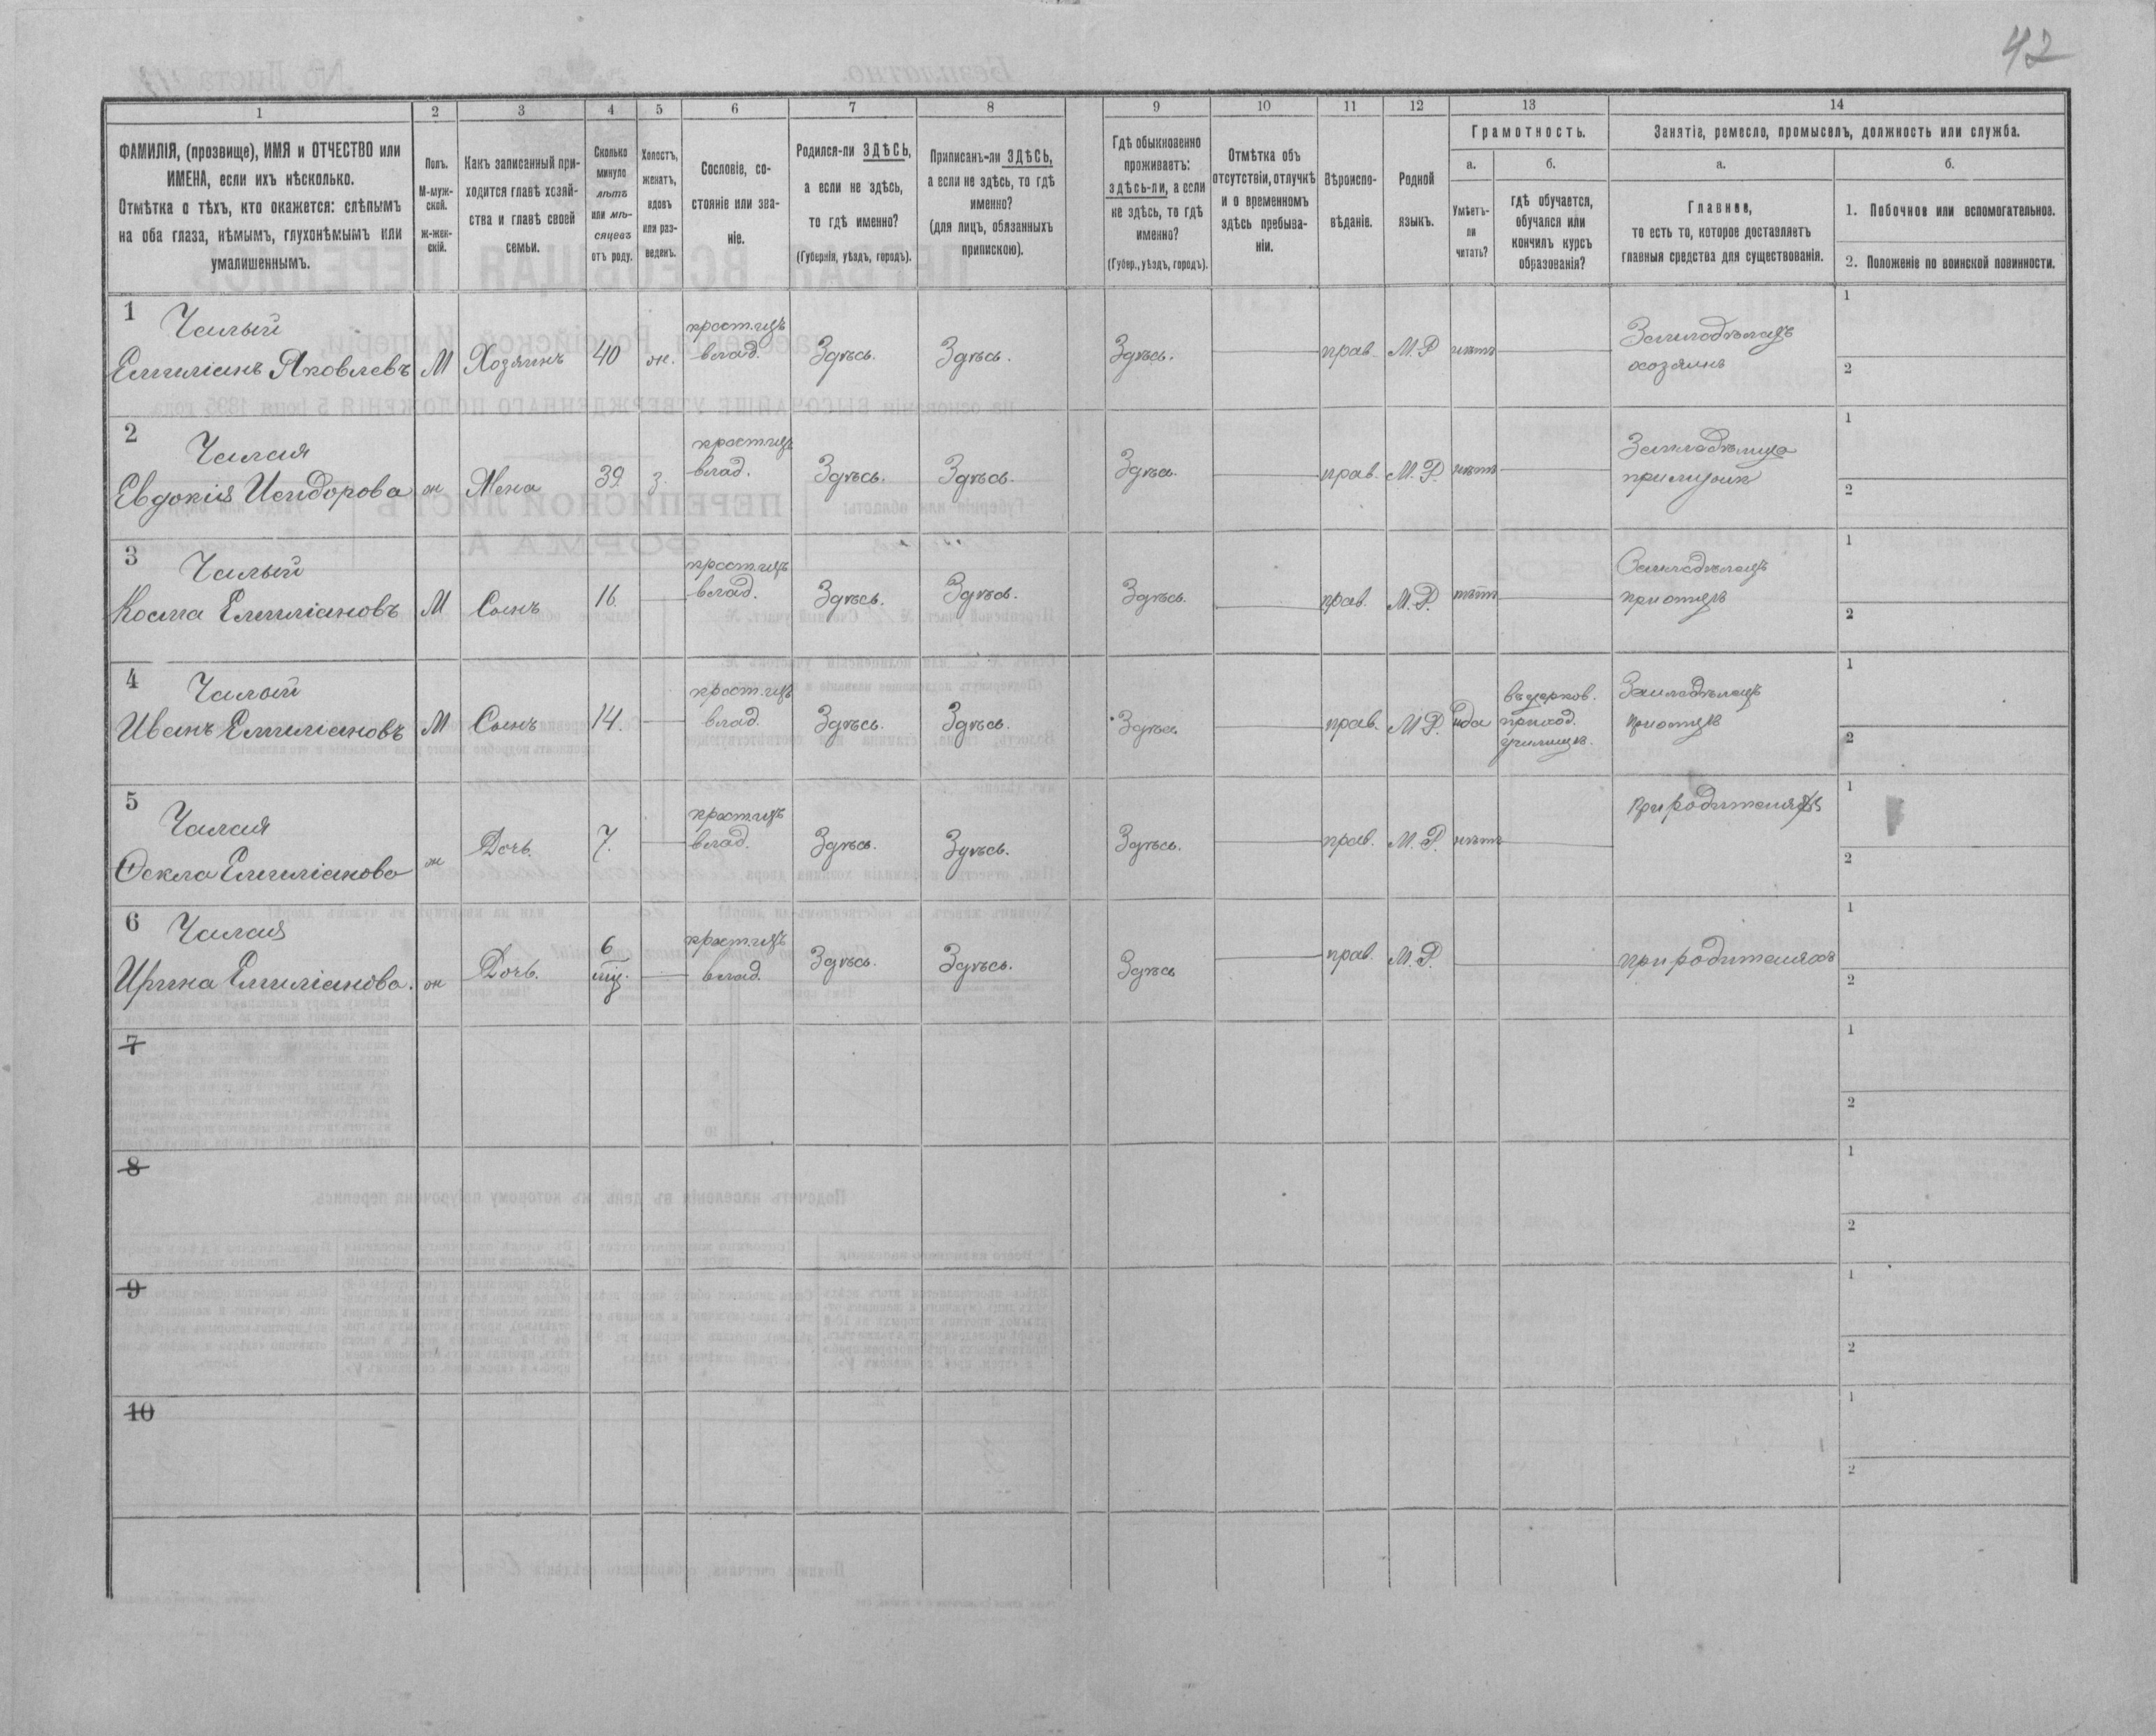 42
1
2
3
4
5
6
7
8
9
10
11
12
13
14
ФАМИЛІЯ, (прозвище), ИМЯ и ОТЧЕСТВО или
ИМЕНА, если ихъ нѣсколько.
Отмѣтка о тѣхъ, кто окажется: слѣпымъ
на оба глаза, нѣмымъ, глухонѣмымъ или
умалишеннымъ.
Полъ.
М-муж-
ской.
Ж-жен-
скій.
Какъ записанный при-
ходится главѣ хозяй-
ства и главѣ своей
семьи.
Сколько
минуло
лѣтъ
или мѣ-
сяцевъ
отъ роду.
Холостъ,
женатъ,
вдовъ
или раз-
веденъ.
Сословіе, со-
стояніе или зва-
ніе.
Родился-ли ЗДѢСЬ,
а если не здѣсь,
то гдѣ именно?
(Губернія, уѣздъ, городъ).
Приписанъ-ли ЗДѢСЬ,
а если не здѣсь, то гдѣ
именно?
(для лицъ, обязанныхъ
припискою).
Гдѣ обыкновенно
проживаетъ:
здѣсь-ли, а если
не здѣсь, то гдѣ
именно?
(Губер., уѣздъ, городъ).
Отмѣтка объ
отсутствіи, отлучкѣ
и о временномъ
здѣсь пребыва-
ніи.
Вѣроиспо-
вѣданіе.
Родной
языкъ.
Грамотность.
а.
Умѣетъ-
ли
читать?
б.
гдѣ обучается,
обучался или
кончилъ курсъ
образованія?
Занятіе, ремесло, промыселъ, должность или служба.
а.
Главное,
то есть то, которое доставляетъ
главныя средства для существованія.
б.
1. Побочное или вспомогательное.
2. Положеніе по воинской повинности.
1
Чалый
Емиліанъ Яковлевъ М Хозяинъ 40 ж. влад. Здѣсь. Здѣсь. Здѣсь. прав. М.Р нѣтъ Земледѣлецъ
хозяинъ
1
2
2
Чалая
Евдокія Исидорова ж Жена 39. з. влад. Здѣсь. Здѣсь. Здѣсь. прав. М.Р. нѣтъ Земледѣлица
1
2
3
Чалый
Косма Емиліановъ М Сынъ 16. влад. Здѣсь. Здѣсь. Здѣсь. прав. М.Р. нѣтъ Земледѣлецъ
при отцѣ
1
2
4
Чалый
Иванъ Емиліановъ М Сынъ 14. влад. Здѣсь. Здѣсь. Здѣсь прав. М.Р. да въ церков.
приход.
училищѣ.
Земледѣлецъ
при отцѣ
1
2
5
Чалая
Ѳекла Емиліанова ж Дочь. 7. влад. Здѣсь. Здѣсь. Здѣсь. прав. М.Р. нѣтъ при родителяхъ
1
2
6
Чалая
Ирина Емиліанова. ж Дочь. 6 влад. Здѣсь. Здѣсь. Здѣсь прав. М.Р. при родителяхъ
1
2
7
1
2
8
1
2
9
1
2
10
1
2